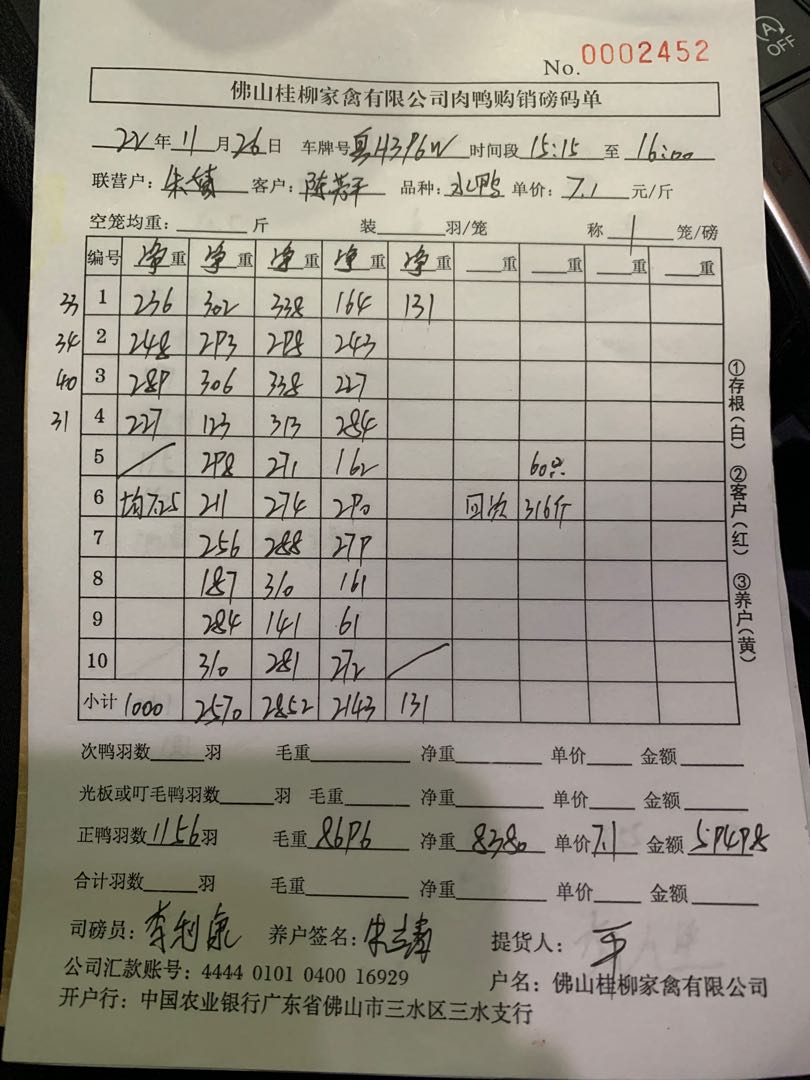 No. 0002452
佛山桂柳家禽有限公司肉鸭购销磅码单
22年11月26日 车牌号粤H396W 时间段 15:15 至 16:00
联营户: 客户:陈芳平 品种:水鸭 单价:7.1 元/斤
空笼均重: 斤 装 羽/笼 称 1 笼/磅
编号 净重 净重 净重 净重 净重 重 重 重 重
33 1 236 302 338 164 131
34 2 248 293 298 243
40 3 289 306 338 227
31 4 227 123 313 284
5 / 298 271 162 60只
6 均7.25 211 274 290 回次 316斤
7 256 288 279
8 187 310 161
9 284 141 61
10 310 281 272 /
小计 1000 2570 2852 2143 131
次鸭羽数 羽 毛重 净重 单价 金额
光板或叮毛鸭羽数 羽 毛重 净重 单价 金额
正鸭羽数1156羽 毛重 8696 净重 8380 单价7.1 金额 59498
合计羽数 羽 毛重 净重 单价 金额
司磅员:李利泉 养户签名: 提货人:平
公司汇款账号:4444 0101 0400 16929 户名:佛山桂柳家禽有限公司
开户行:中国农业银行广东省佛山市三水区三水支行
①存根(白) ②客户(红) ③养户(黄)
A
OFF